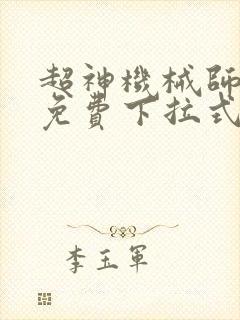 超神機械師
免費下拉式
李玉軍